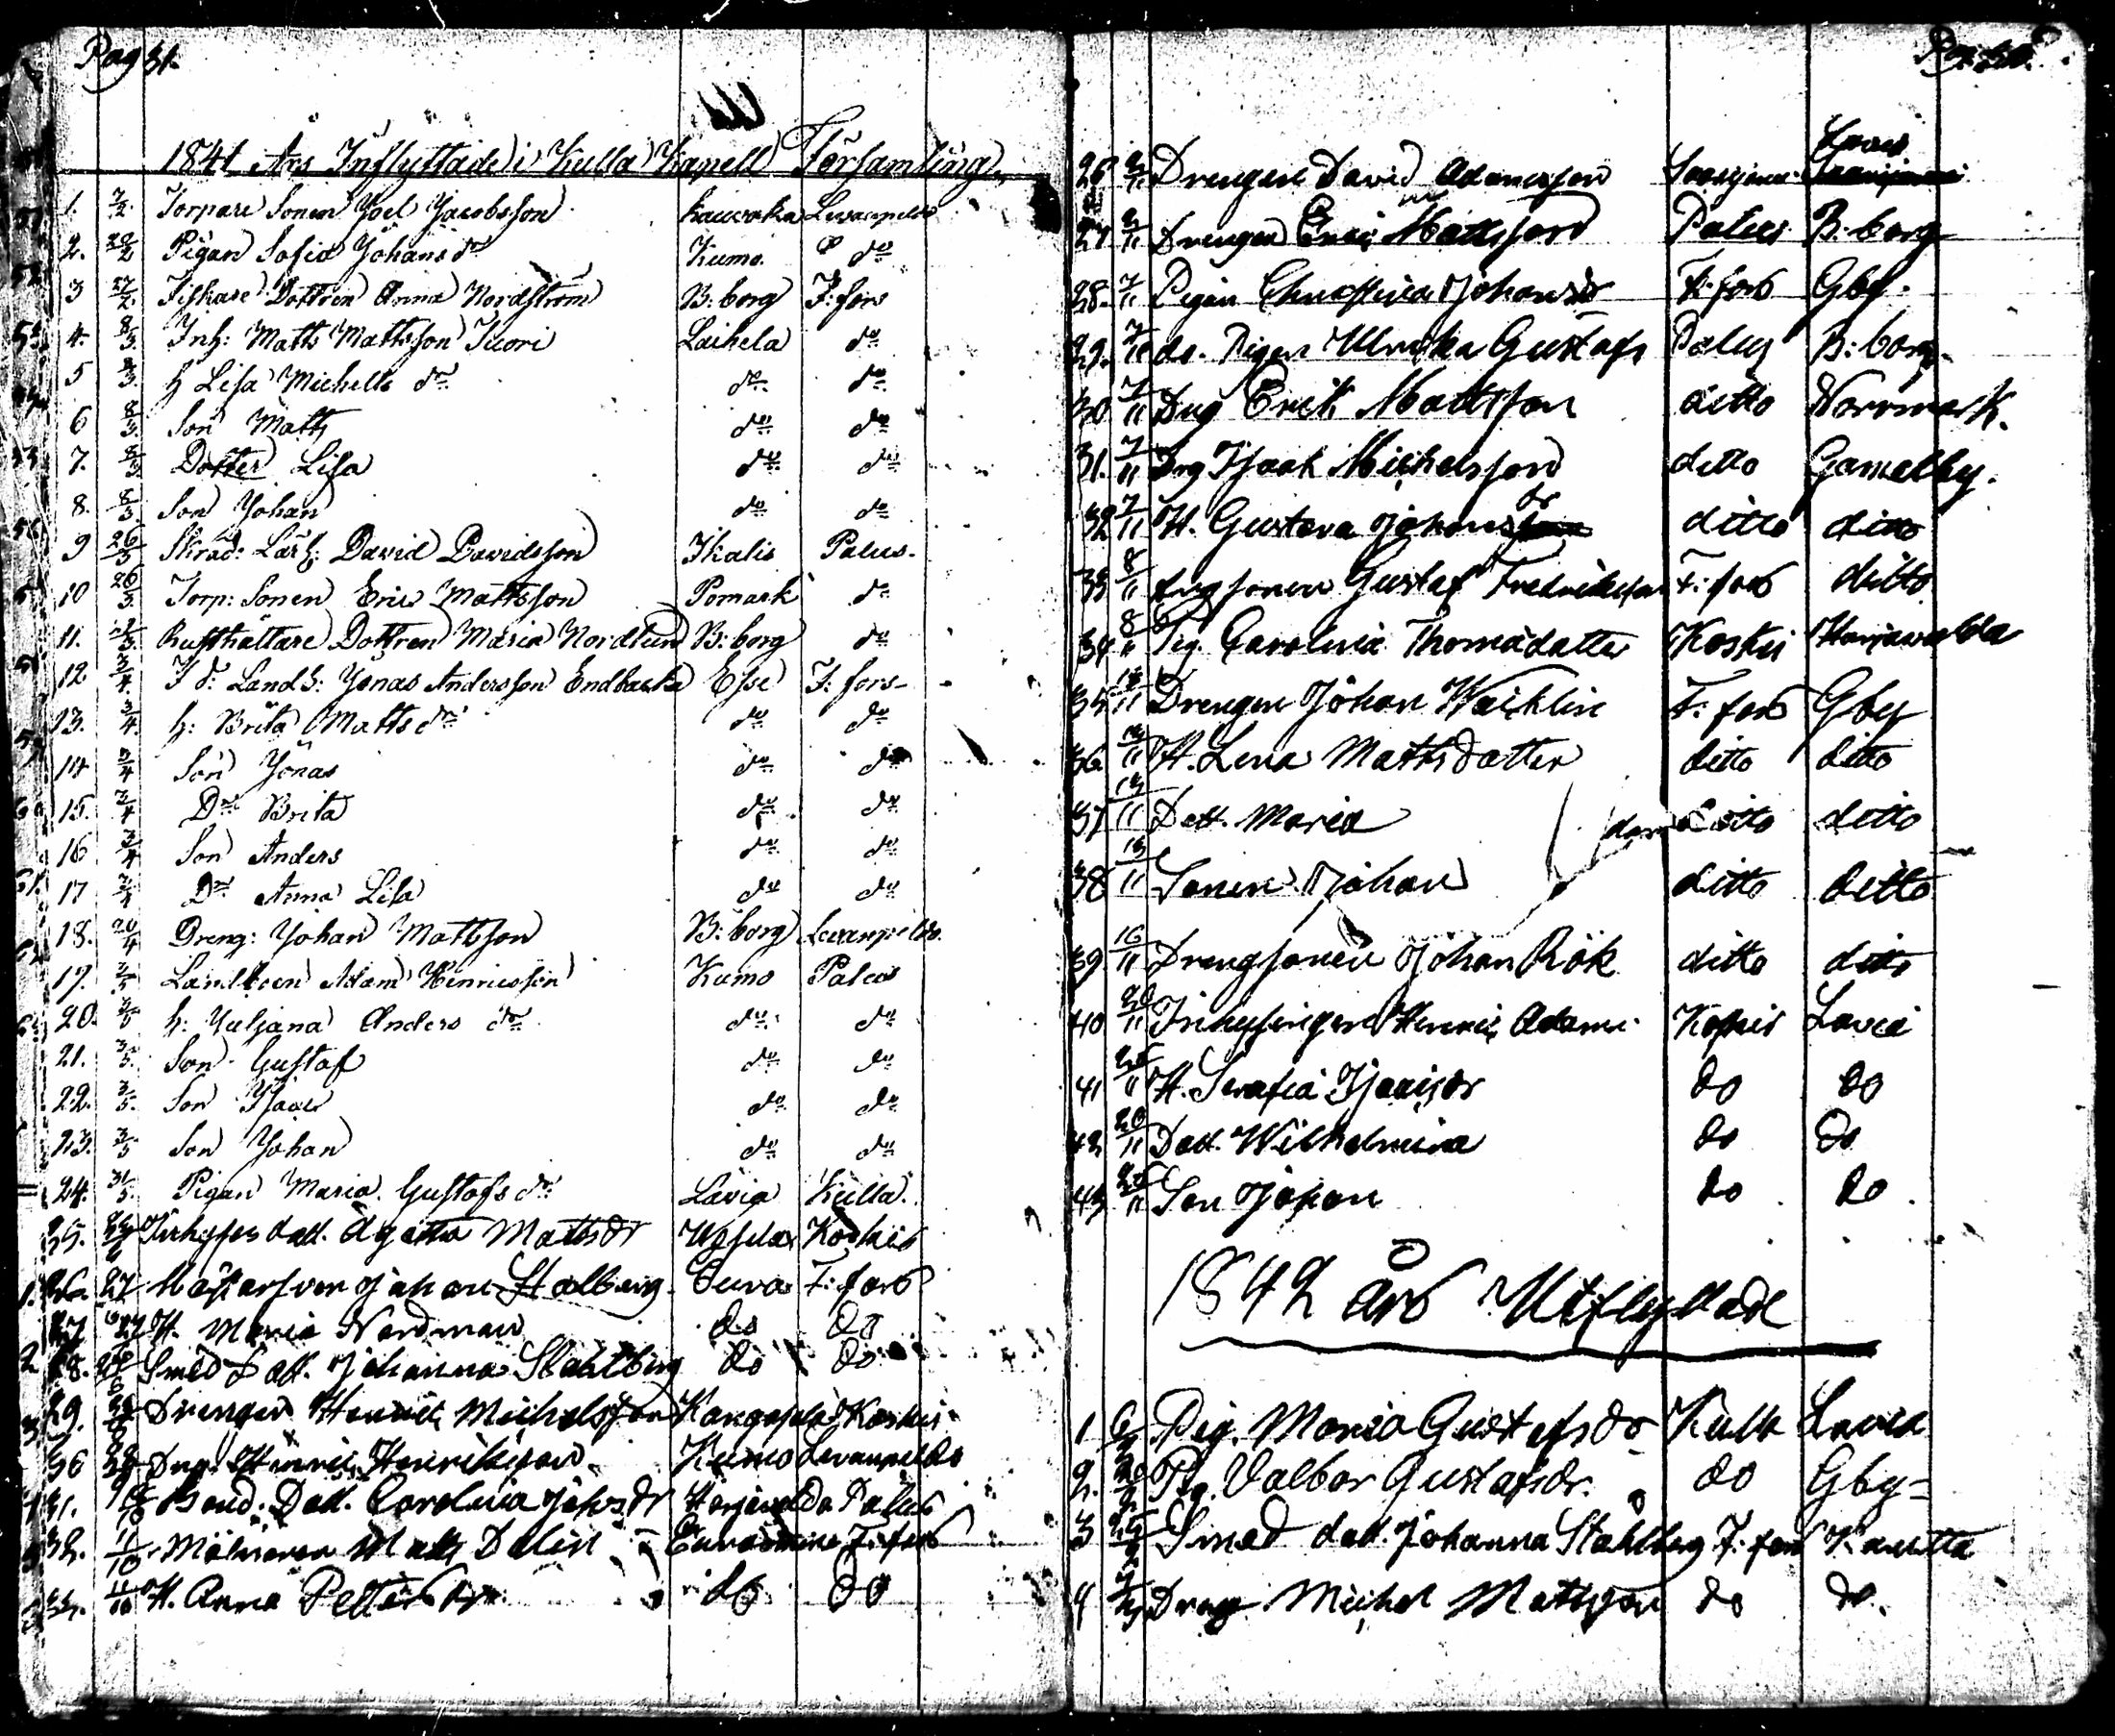 Pag 31.
1841 Års Inflyttade i Kulla Kapell Församling
1. 7/2. Torpare Sonen Joel Jacobsson Kauvatsa Levanpelto
2. 20/2 Pigan Sofia Johans dr Kumo. do
3 27/2. Fiskare Dottren Anna Nordström B:borg F:fors
4. 8/3. Inh: Matts Mattsson Tuori Laihela do
5 8/3. h Lisa Michells dr do do
6 8/3. Son Matts do do
7. 8/3 Dotter Lisa do do
8. 8/3. Son Johan do do
9 26/3 Skräd: Lärl: David Davidsson Ikalis Palus.
10 26/3. Torp: Sonen Eric Mattsson Pomark do
11. Rusthållare Dottren Maria Nordlund B:borg do
12 3/4. Jonas Andersson Endbacka Esse F:fors
13. 3/4. h: Brita Matts dr do do
14 3/4 Son Jonas do do
15. 3/4 Dr Brita do do
16 3/4 Son Anders do do
17 3/4 Dr Anna Lisa do do
18. 20/4 Dreng: Johan Mattsson B:borg Levanpelto.
19. 3/5 Landboen Adam Henricsson Kumo Palus
20. 3/5 h: Juljana Anders dr do do
21. 3/5. Son Gustaf do do
22. 3/5. Son Isaac do do
23. 3/5 Son Johan do do
24. 31/5. Pigan Maria Gustafs dr Lavia Kulla.
25. Inhyses dott. Agatha Matts dr Koskis
26. 27 Johan Stålberg Eura F:fors
27 27 H. Maria Nordman do do
28. Smed Dott. Johanna Stahlberg do do
29. Drengen Henric Michelsson Kangasala Koskis
30 Dreng Henric Henriksson Kumo Levanpelto
31. Bond. Dott. Carolina Johs dr Harjavalda Palus
32. 11/10 Mölnaren Matts Dalin Euraåminne F:fors
33. 11/10 H. Anna Petters dr do do
26 2/11 Drengen David Adamsson Lavia
27 2/11 Drengen Eric Mattsson Palus B:borg
28. 7/11 Pigan Christina Johansdr F:fors Gby.
29. 7/11 do. Pigan Ulrika Gustafs Palus B:borg.
30 7/11 Dreng Erik Mattsson ditto Norrmark.
31. 7/11 Drg Isaak Michelsson ditto Gamelby.
32 7/11 H. Gustava Johans dr ditto ditto
33 8/11 Drengsonen Gustaf Fredriksson F:fors ditto
34 8/11 Pig. Carolina Thomadatter Koskis Harjawalda
35 13/11 Drengen Johan Wacklin F:fors Gby
36. 13/11 H. Lena Mattsdatter ditto ditto
37 13/11 Dott. Maria ditto ditto
38 13/11 Sonen Johan ditto ditto
39 16/11 Drengsonen Johan Rök ditto ditto
40 20/11 Inhysingen Henric Adams. Koskis Lavia
41 20/11 H. Serafia Isacsdr do do
42 20/11 Dott. Wilhelmina do do
43 20/11 Son Johan do do.
1842 års Utflyttade
1 Pig. Maria Gustafsdr Kulla Lavia
2. Pig. Valbor Gustafsdr. do Gby
3 Smed dott. Johanna Stahlberg F:fors Kauttua
4 Dreng Michel Mattsson do do.